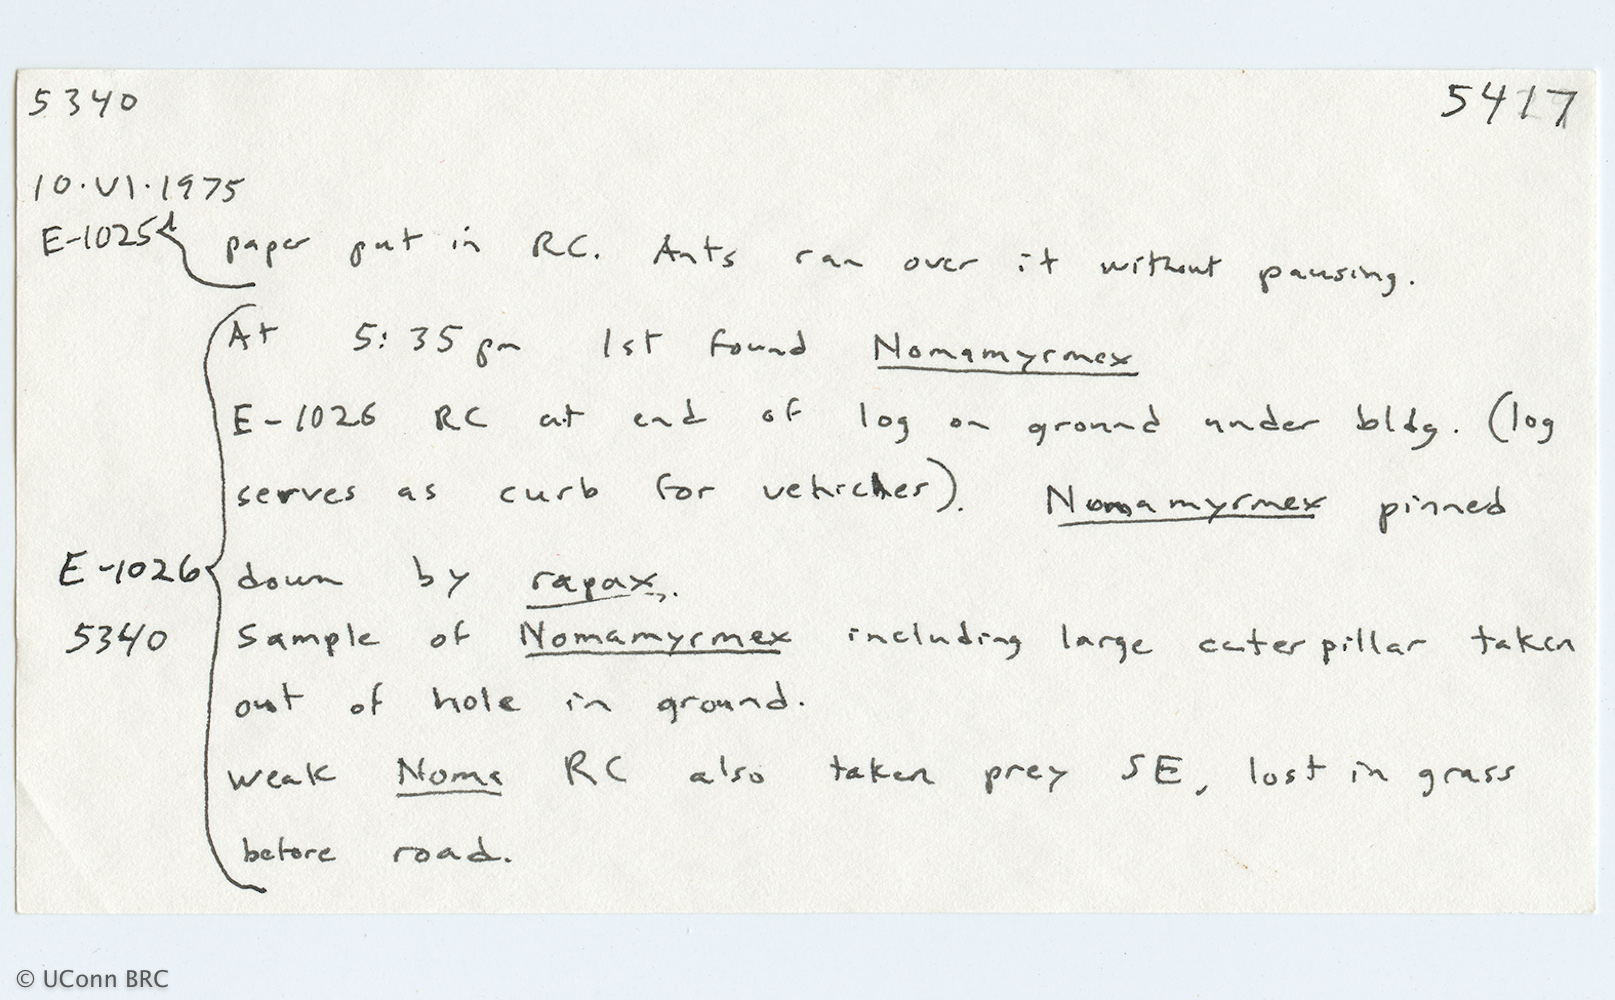 5340 5417
10.VI.1975
E-1025 paper put in RC. Ants ran over it without pausing.
At 5:35 pm 1st found Nomamyrmex
E-1026 RC at end of log on ground under bldg. (log
serves as curb for vehicles). Nomamyrmex pinned
E-1026 down by rapax.
5340 Sample of Nomamyrmex including large caterpillar taken
out of hole in ground.
weak Noma RC also taken prey SE, lost in grass
before road.
© UConn BRC